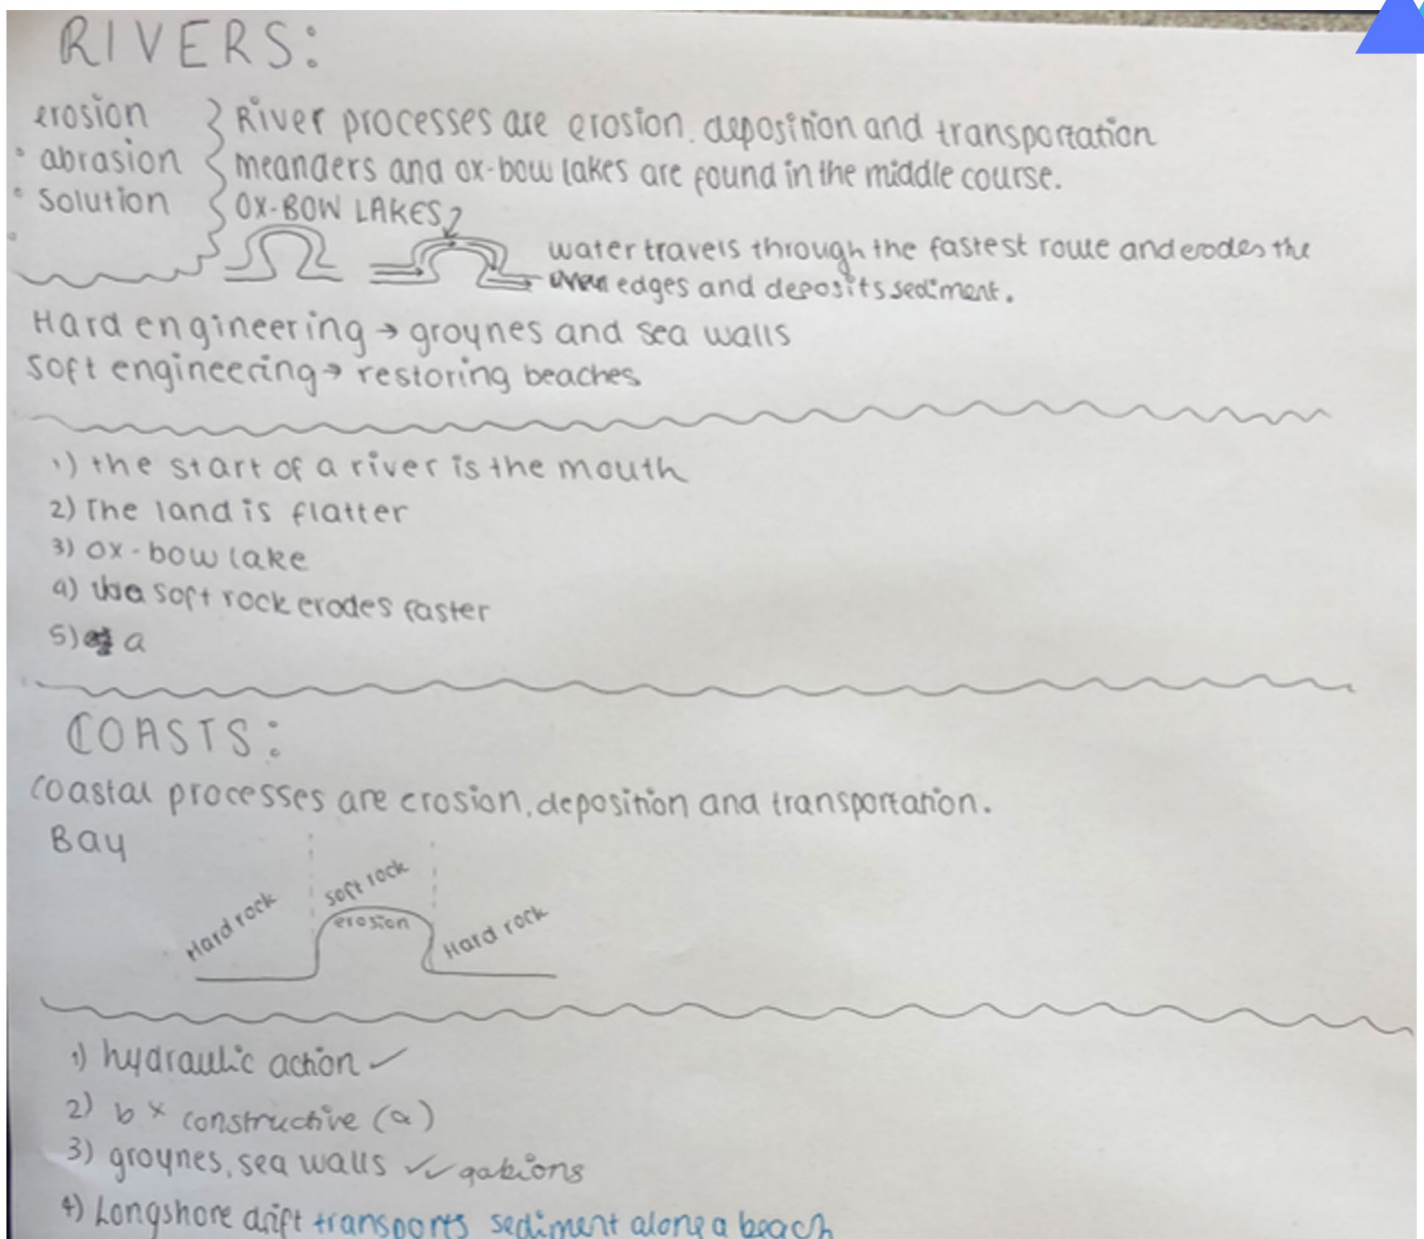 RIVERS:
erosion
• abrasion
• solution
•
River processes are erosion, deposition and transportation
meanders and ox-bow lakes are found in the middle course.
OX-BOW LAKES
water travels through the fastest route and erodes the
edges and deposits sediment.
Hard engineering → groynes and sea walls
Soft engineering → restoring beaches
1) the start of a river is the mouth
2) The land is flatter
3) ox-bow lake
4) soft rock erodes faster
5) a
COASTS:
coastal processes are erosion, deposition and transportation.
Bay
Hard rock
soft rock
erosion
Hard rock
1) hydraulic action ✓
2) b × constructive (a)
3) groynes, sea walls ✓✓ gabions
4) Longshore drift transports sediment along a beach